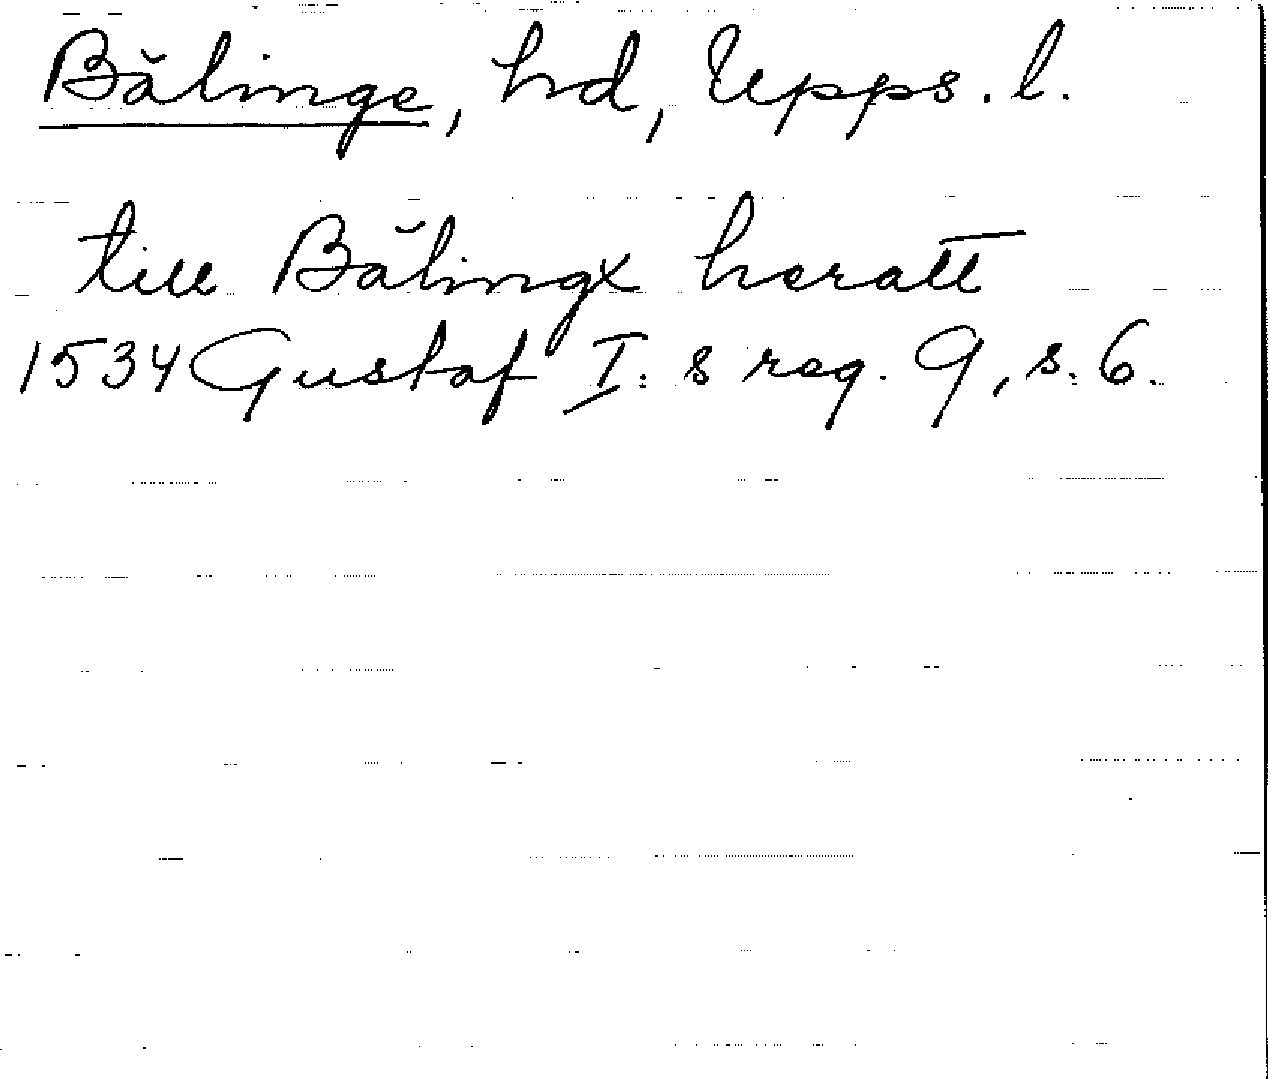 Bălinge, hd, Upps. l.
till Bălingx heratt
1534 Gustaf I:s reg. 9, s. 6.